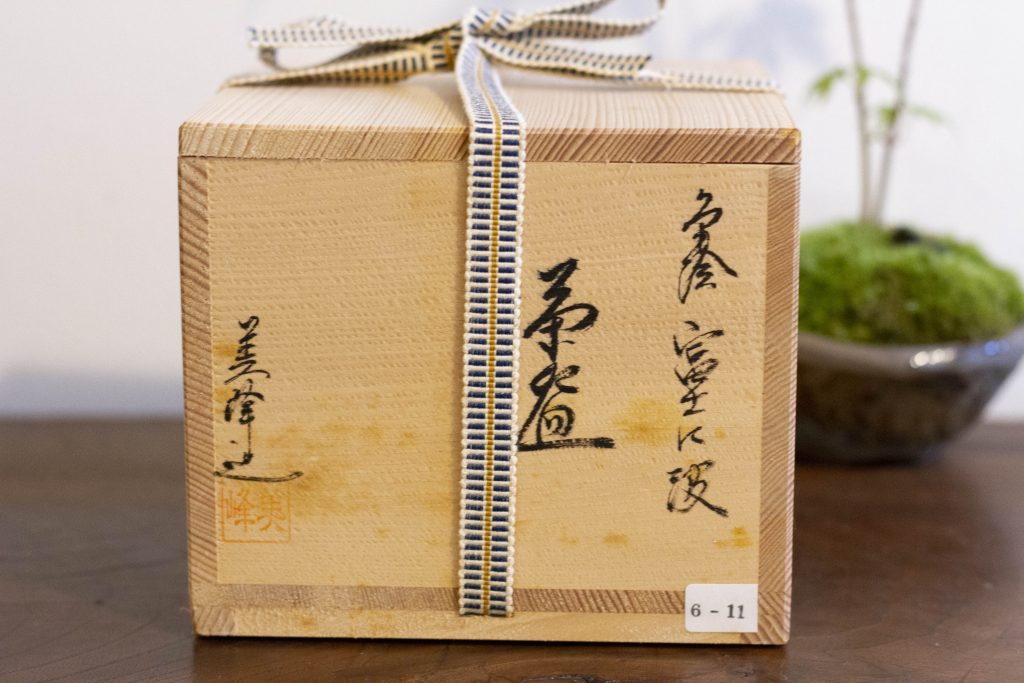 色絵 富士に波
茶盌
美峰造
美峰
6 - 11